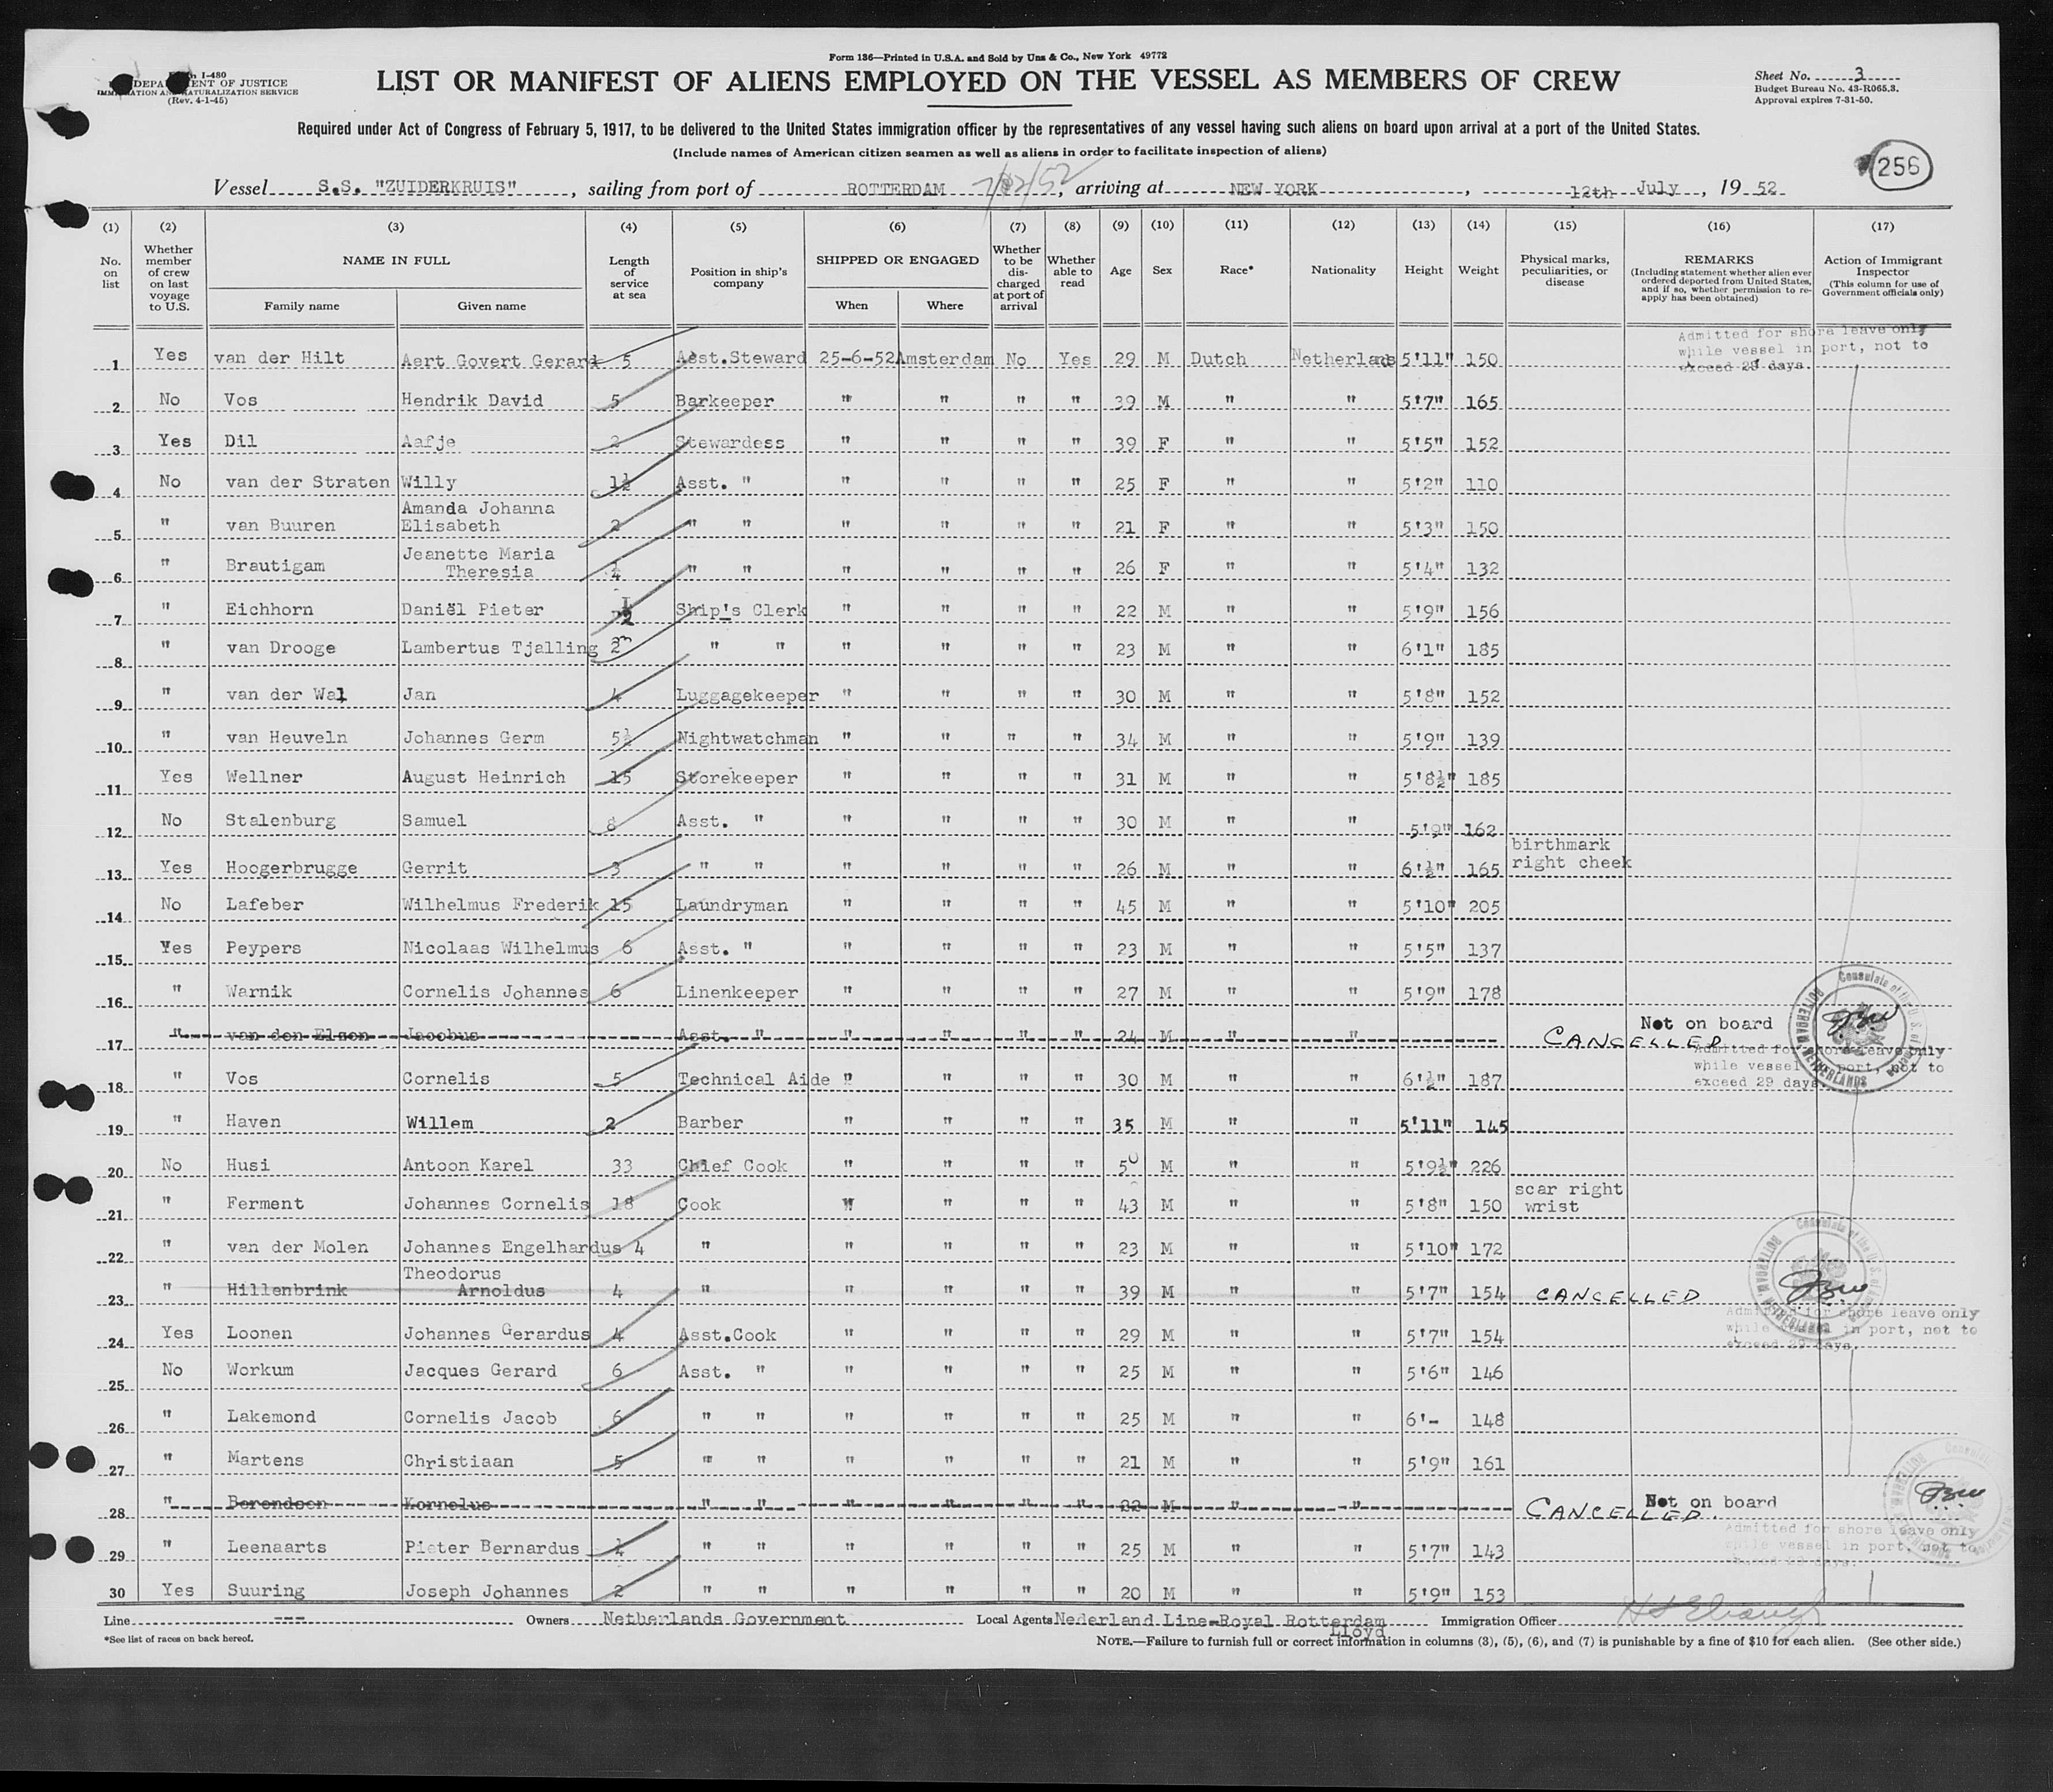 Form 136—Printed in U.S.A. and Sold by Unz & Co., New York 49772
I-480
DEPARTMENT OF JUSTICE
IMMIGRATION AND NATURALIZATION SERVICE
(Rev. 4-1-45)
LIST OR MANIFEST OF ALIENS EMPLOYED ON THE VESSEL AS MEMBERS OF CREW
Sheet No. 3
Budget Bureau No. 43-R065.3.
Approval expires 7-31-50.
Required under Act of Congress of February 5, 1917, to be delivered to the United States immigration officer by the representatives of any vessel having such aliens on board upon arrival at a port of the United States.
(Include names of American citizen seamen as well as aliens in order to facilitate inspection of aliens)
256
Vessel S.S. "ZUIDERKRUIS", sailing from port of ROTTERDAM 7/12/52, arriving at NEW YORK, 12th July, 19 52
(1) (2) (3) (4) (5) (6) (7) (8) (9) (10) (11) (12) (13) (14) (15) (16) (17)
No. on list
Whether member of crew on last voyage to U.S.
NAME IN FULL
Family name
Given name
Length of service at sea
Position in ship's company
SHIPPED OR ENGAGED
When
Where
Whether to be discharged at port of arrival
Whether able to read
Age
Sex
Race*
Nationality
Height
Weight
Physical marks, peculiarities, or disease
REMARKS
(Including statement whether alien ever ordered deported from United States, and if so, whether permission to reapply has been obtained)
Action of Immigrant Inspector
(This column for use of Government officials only)
Admitted for shore leave only
while vessel in port, not to
exceed 29 days.
1 Yes van der Hilt Aert Govert Gerard 5 Asst.Steward 25-6-52 Amsterdam No Yes 29 M Dutch Netherlands 5'11" 150
2 No Vos Hendrik David 5 Barkeeper " " " " 39 M " " 5'7" 165
3 Yes Dil Aafje 2 Stewardess " " " " 39 F " " 5'5" 152
4 No van der Straten Willy 1½ Asst. " " " " " 25 F " " 5'2" 110
5 " van Buuren Amanda Johanna Elisabeth 2 " " " " " " 21 F " " 5'3" 150
6 " Brautigam Jeanette Maria Theresia ¼ " " " " " " 26 F " " 5'4" 132
7 " Eichhorn Daniël Pieter ½ Ship's Clerk " " " " 22 M " " 5'9" 156
8 " van Drooge Lambertus Tjalling 2 " " " " " " 23 M " " 6'1" 185
9 " van der Wal Jan 4 Luggagekeeper " " " " 30 M " " 5'8" 152
10 " van Heuveln Johannes Germ 5½ Nightwatchman " " " " 34 M " " 5'9" 139
11 Yes Wellner August Heinrich 15 Storekeeper " " " " 31 M " " 5'8½" 185
12 No Stalenburg Samuel 8 Asst. " " " " " 30 M " " 5'9" 162
13 Yes Hoogerbrugge Gerrit 3 " " " " " " 26 M " " 6'½" 165 birthmark right cheek
14 No Lafeber Wilhelmus Frederik 15 Laundryman " " " " 45 M " " 5'10" 205
15 Yes Peypers Nicolaas Wilhelmus 6 Asst. " " " " " 23 M " " 5'5" 137
16 " Warnik Cornelis Johannes 6 Linenkeeper " " " " 27 M " " 5'9" 178
17 " van den Elsen Jacobus Asst. " " " " " 24 M " " CANCELLED Not on board
Consulate of the U.S. of America ROTTERDAM, NETHERLANDS
Admitted for shore leave only
while vessel in port, not to
exceed 29 days
18 " Vos Cornelis 5 Technical Aide " " " " 30 M " " 6'½" 187
19 " Haven Willem 2 Barber " " " " 35 M " " 5'11" 145
20 No Husi Antoon Karel 33 Chief Cook " " " " 50 M " " 5'9½" 226
21 " Ferment Johannes Cornelis 18 Cook " " " " 43 M " " 5'8" 150 scar right wrist
22 " van der Molen Johannes Engelhardus 4 " " " " " 23 M " " 5'10" 172
23 " Hillenbrink Theodorus Arnoldus 4 " " " " " 39 M " " 5'7" 154 CANCELLED
Admitted for shore leave only
while vessel in port, not to
exceed 29 days.
24 Yes Loonen Johannes Gerardus 4 Asst.Cook " " " " 29 M " " 5'7" 154
25 No Workum Jacques Gerard 6 Asst. " " " " " 25 M " " 5'6" 146
26 " Lakemond Cornelis Jacob 6 " " " " " " 25 M " " 6'- 148
27 " Martens Christiaan 5 " " " " " " 21 M " " 5'9" 161
28 " Berendsen Kornelus " " " " " " M " " CANCELLED. Not on board
Admitted for shore leave only
while vessel in port, not to
exceed 29 days.
29 " Leenaarts Pieter Bernardus ¼ " " " " " " 25 M " " 5'7" 143
30 Yes Suuring Joseph Johannes 2 " " " " " " 20 M " " 5'9" 153
Line --- Owners Netherlands Government Local Agents Nederland Line-Royal Rotterdam Lloyd Immigration Officer
*See list of races on back hereof.
NOTE.—Failure to furnish full or correct information in columns (3), (5), (6), and (7) is punishable by a fine of $10 for each alien. (See other side.)